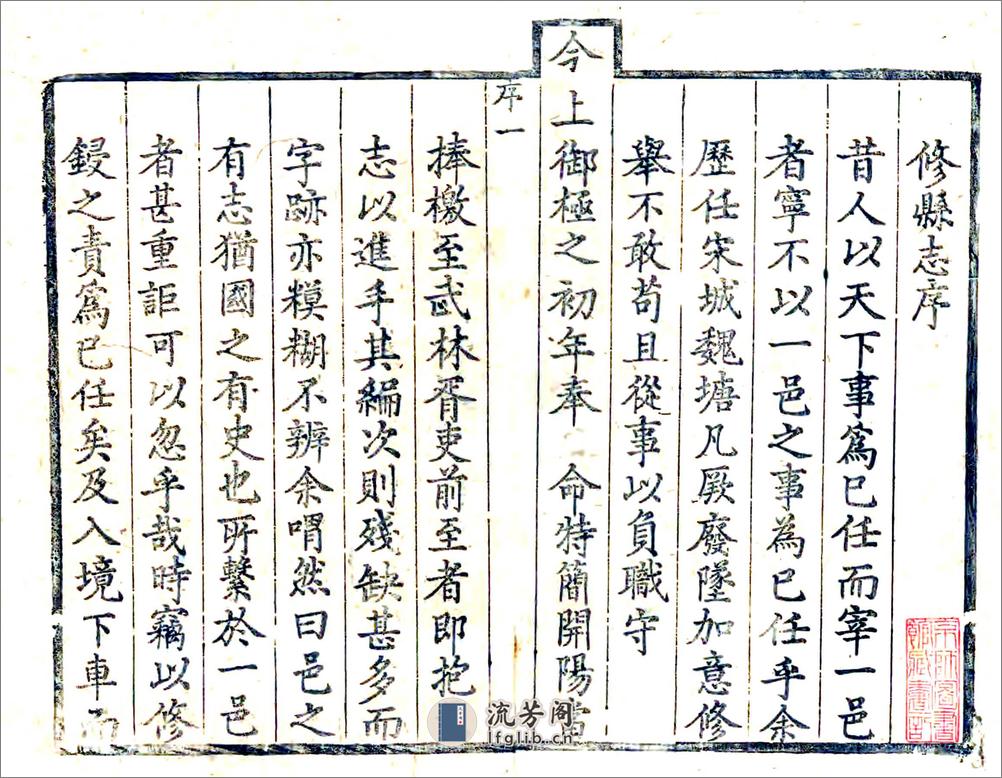 修縣志序
昔人以天下事爲已任而宰一邑
者寧不以一邑之事為已任乎余
歷任宋城魏塘凡厥廢墜加意修
舉不敢苟且從事以負職守
今上御極之初年奉 命特簡開陽當
序一
捧檄至武林胥吏前至者即抱
志以進手其編次則殘缺甚多而
字跡亦糢糊不辨余喟然曰邑之
有志猶國之有史也所繫於一邑
者甚重詎可以忽乎哉時竊以修
鋟之責爲已任矣及入境下車而
流芳阁
lfglib.cn